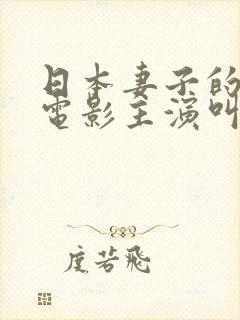 日本妻子的
電影主演叫
度若飛